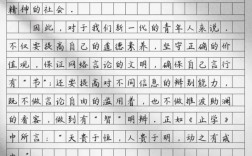 精神的社会。
因此，对于我们新一代的青年人来说，
不仅要提高自己的道德素养，坚守正确的价
值观，保证网络言论的文明，确保自己言行
有“节”；还要提高对不同信息的辨别能力，
既不做言论自由的滥用者，也不做推波助澜
的看客，做到有“智”明辨，正如《止学》
中所言：“天贵于恒，人贵于明，动之有成
也。”